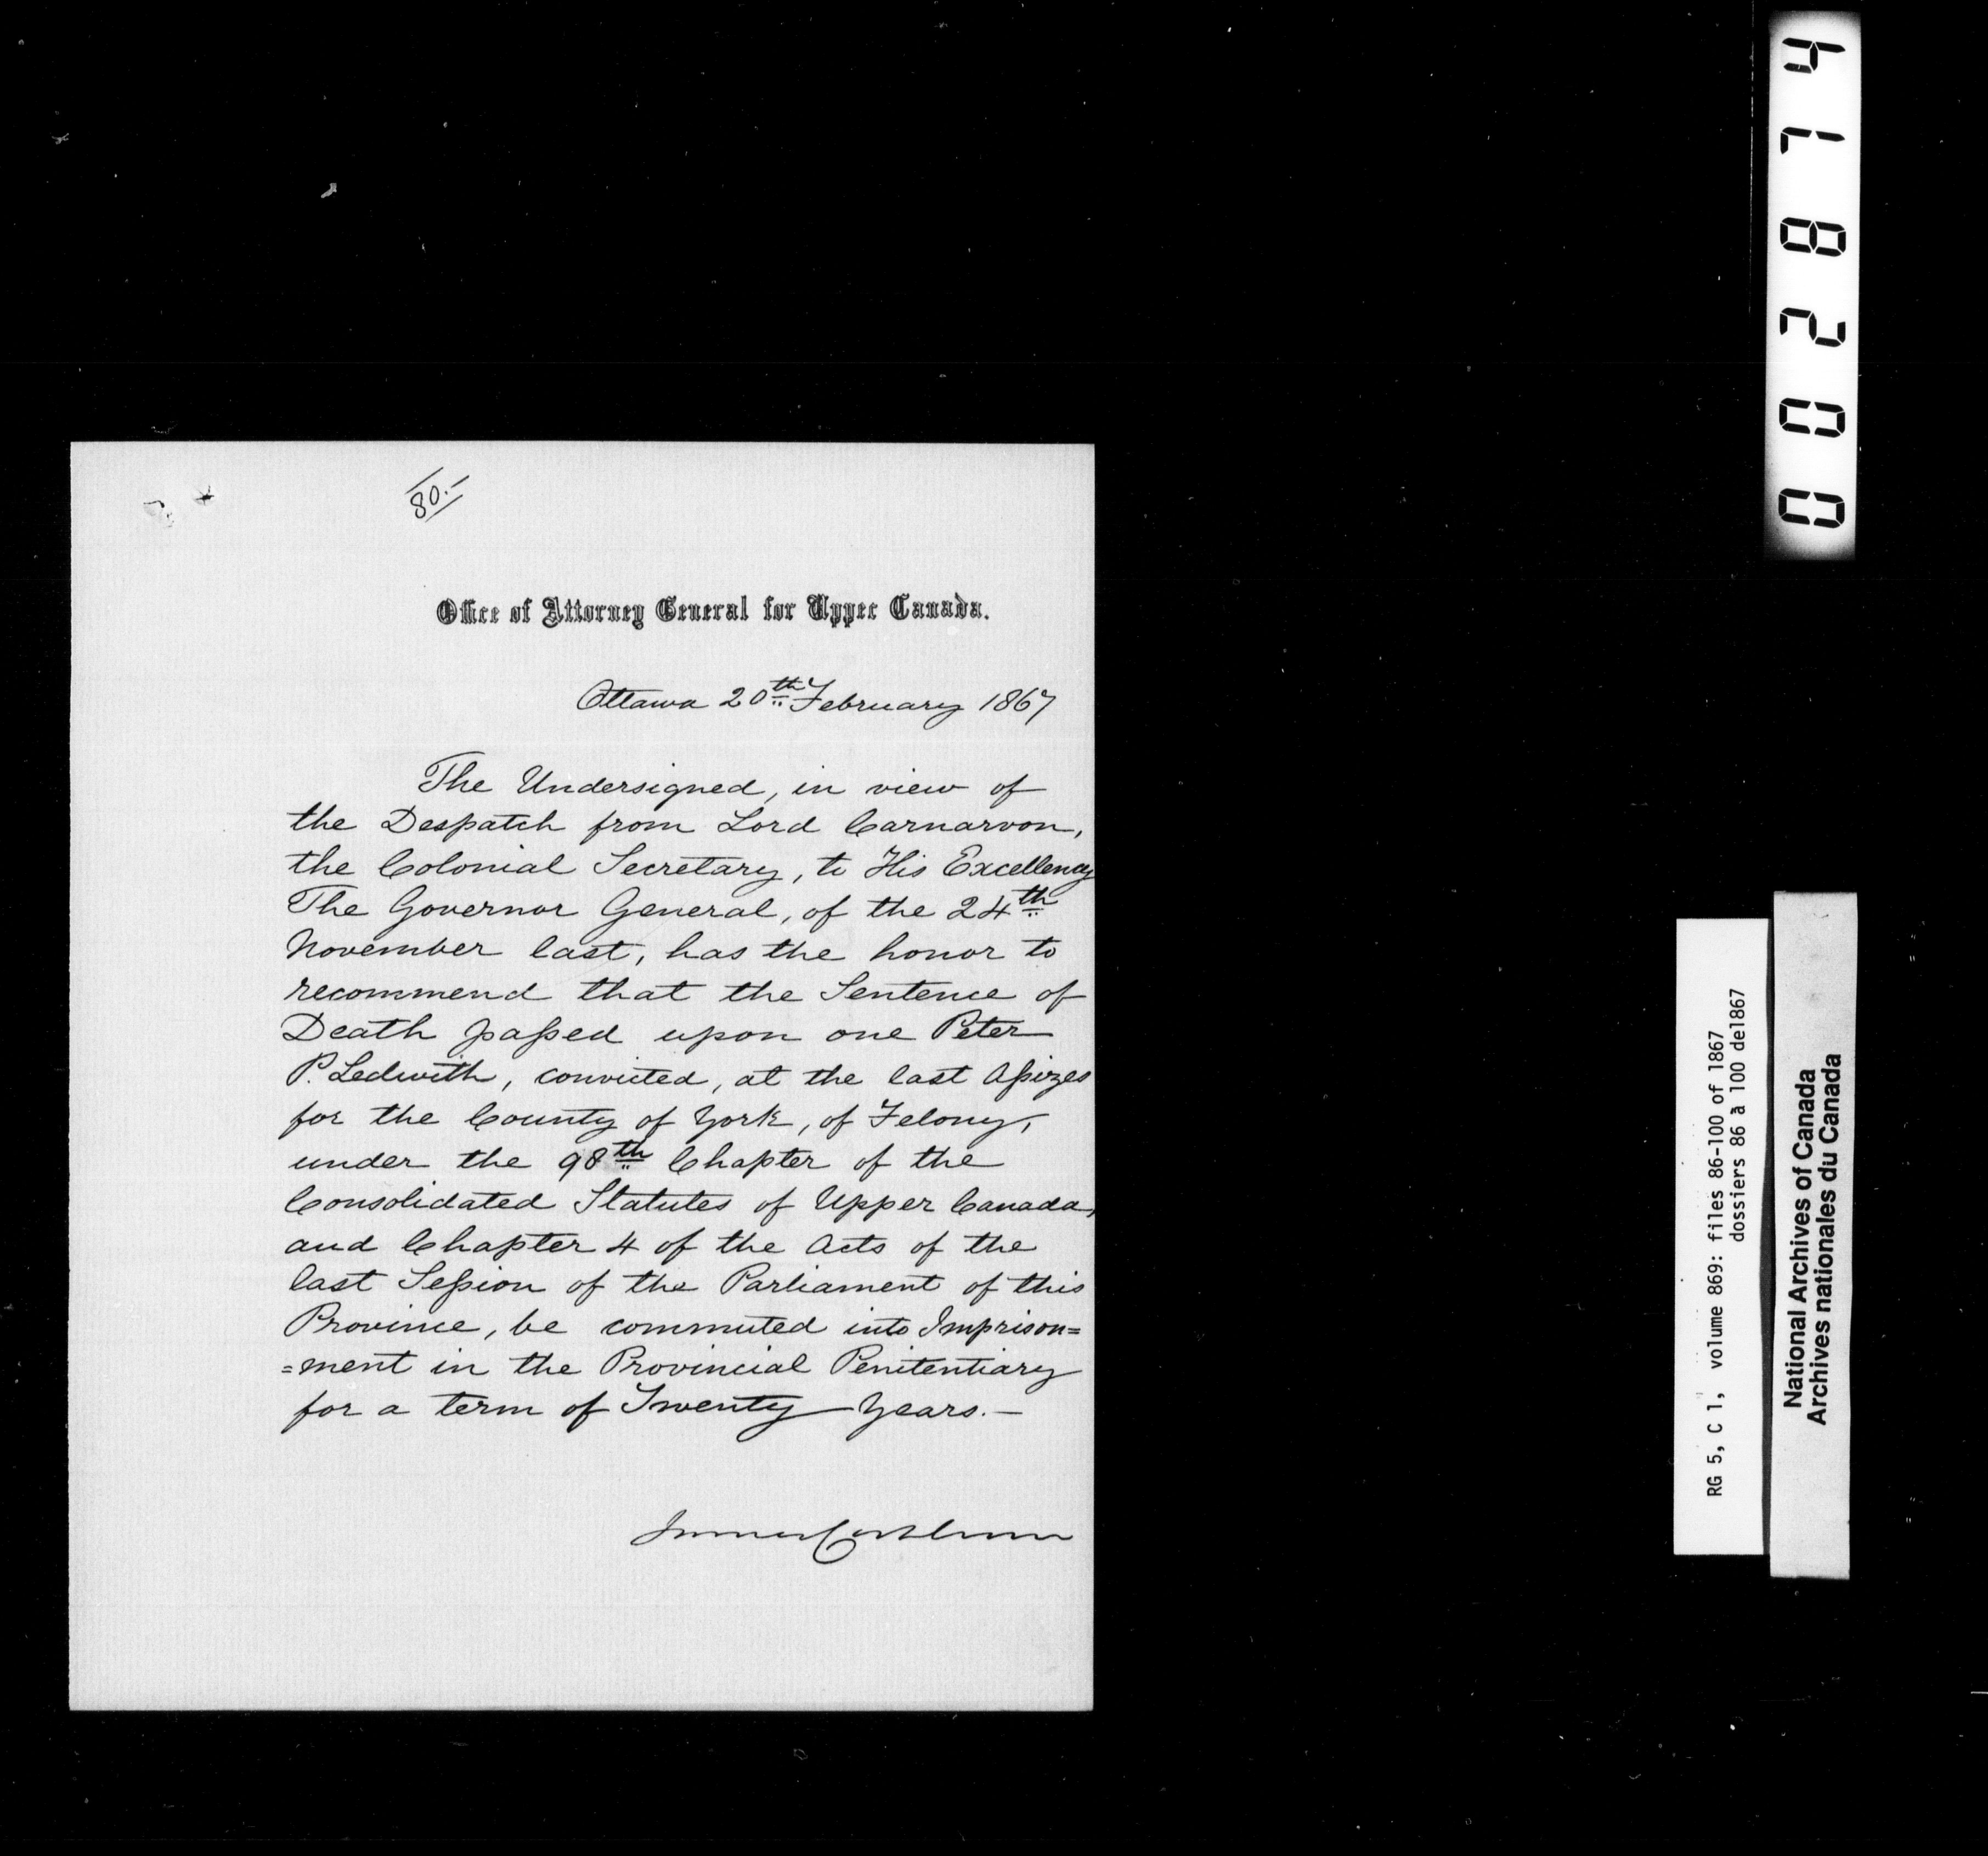 80.-
Office of Attorney General for Upper Canada.
Ottawa 20th February 1867
The Undersigned, in view of
the Despatch from Lord Carnarvon,
the Colonial Secretary, to His Excellency
The Governor General, of the 24th
November last, has the honor to
recommend that the Sentence of
Death passed upon one Peter
P. Ledwith, convicted, at the last Assizes
for the County of York, of Felony,
under the 98th Chapter of the
Consolidated Statutes of Upper Canada,
and Chapter 4 of the Acts of the
last Session of the Parliament of this
Province, be commuted into Imprison=
=ment in the Provincial Penitentiary
for a term of Twenty Years.-
002874
RG 5, C 1, volume 869: files 86-100 of 1867
dossiers 86 à 100 de1867
National Archives of Canada
Archives nationales du Canada